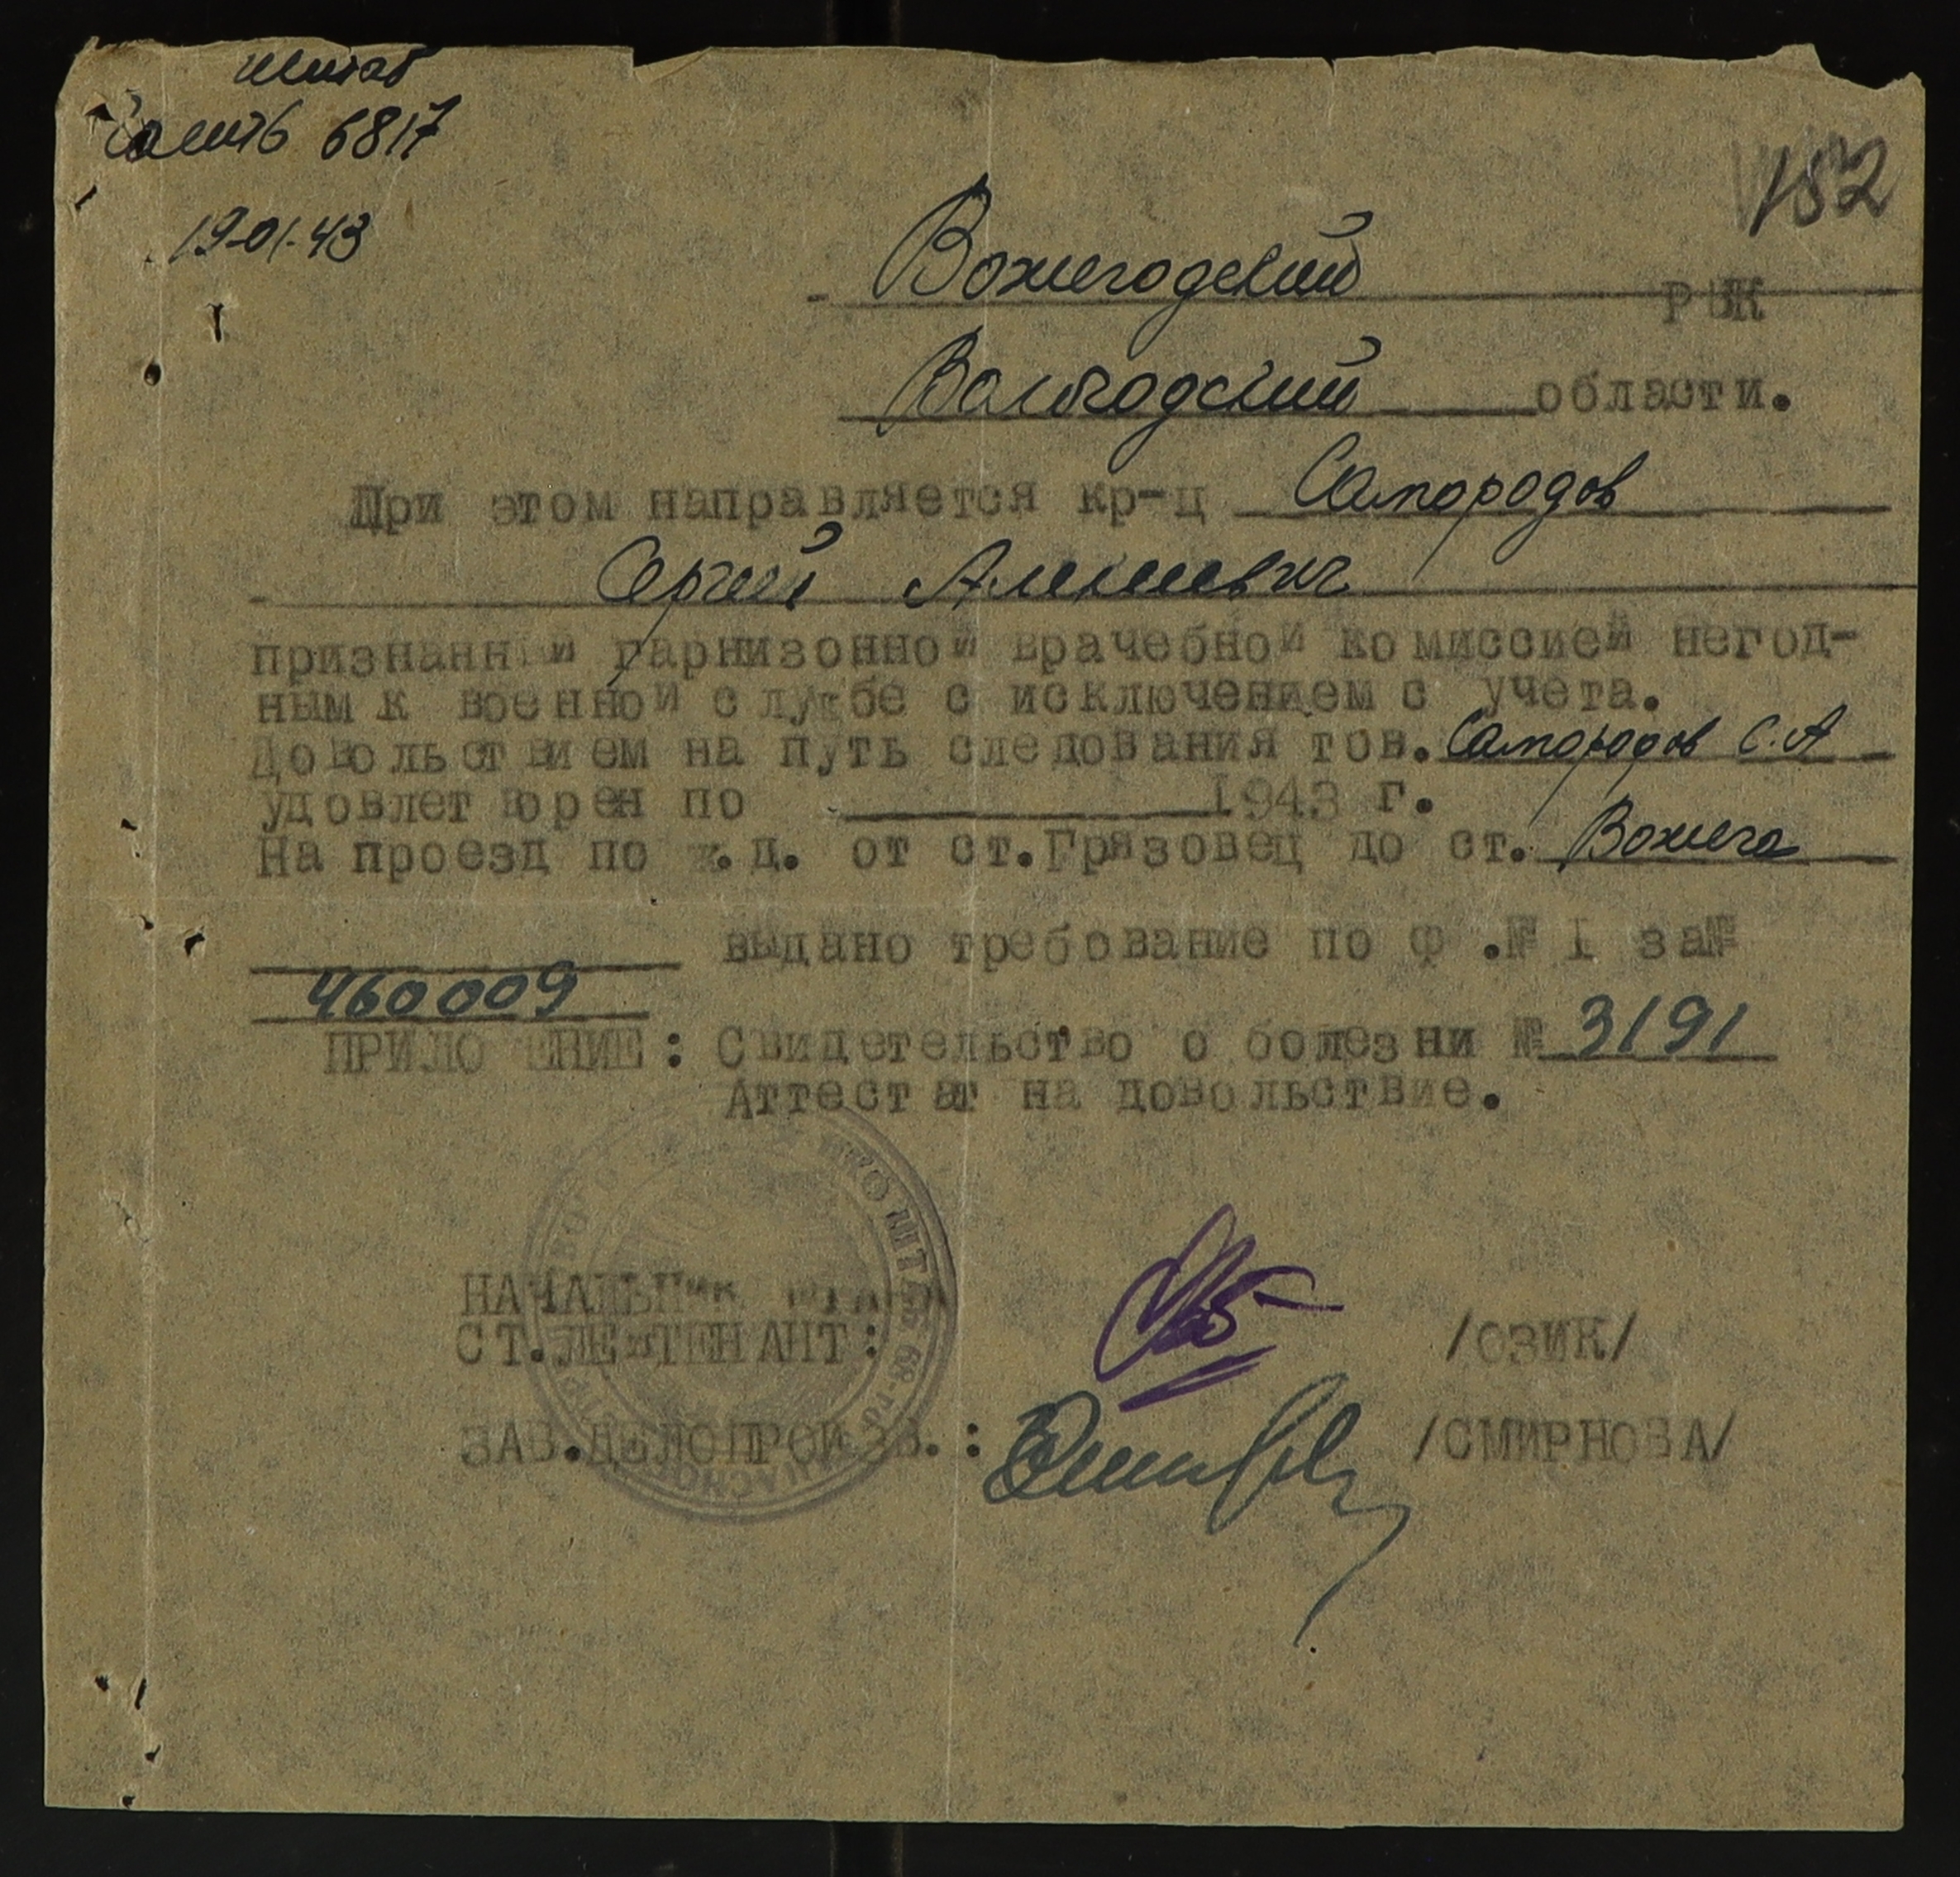 штаб
Часть 6817
19-01-43
182
Вожегодский РВК
Вологодский области.
При этом направляется кр-ц Самородов
Сергей Алексеевич
признанный гарнизонной врачебной комиссией негод-
ным к военной службе с исключением с учета.
Довольствием на путь следования тов. Самородов С.А
удовлетворен по 1943 г.
На проезд по ж.д. от ст.Грязовец до ст. Вожега
выдано требование по ф.№ 1 за№
460009
ПРИЛОЖЕНИЕ: Свидетельство о болезни № 3191
Аттестат на довольствие.
НКО ШТАБ 68-го
НАЧАЛЬНИК ШТАБА
СТ.ЛЕЙТЕНАНТ: /ОЗИК/
ЗАВ.ДЕЛОПРОИЗВ.: /СМИРНОВА/